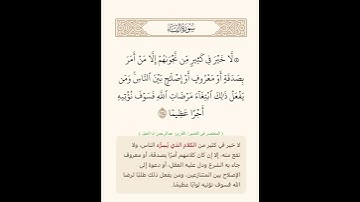 سورة النساء
۞ لَّا خَيْرَ فِي كَثِيرٍ مِّن نَّجْوَىٰهُمْ إِلَّا مَنْ أَمَرَ
بِصَدَقَةٍ أَوْ مَعْرُوفٍ أَوْ إِصْلَٰحٍۭ بَيْنَ ٱلنَّاسِۚ وَمَن
يَفْعَلْ ذَٰلِكَ ٱبْتِغَآءَ مَرْضَاتِ ٱللَّهِ فَسَوْفَ نُؤْتِيهِ
أَجْرًا عَظِيمًا ١١٤
لا خير في كثير من الكلام الذي يُسِرُّه الناس، ولا
نفع منه، إلا إن كان كلامهم أمرًا بصدقة، أو معروف
جاء به الشرع ودل عليه العقل، أو دعوة إلى
الإصلاح بين المتنازعين، ومن يفعل ذلك طلبًا لرضا
الله فسوف نؤتيه ثوابًا عظيمًا.